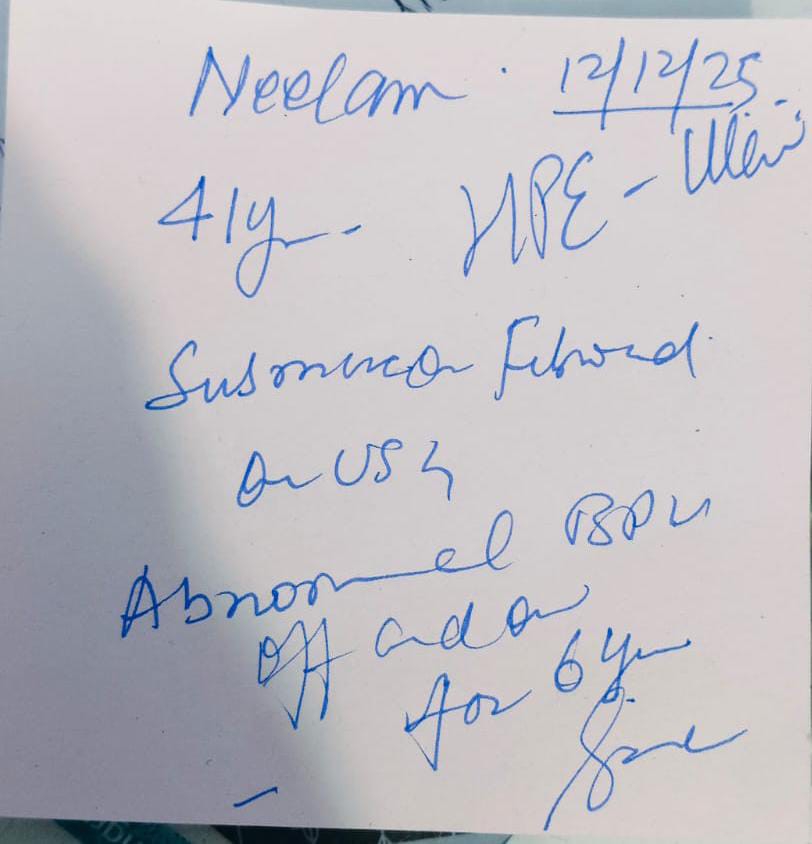 Neelam . 12/12/25.
41y - HPE -
Submucos Fibroid
on USG
Abnormal BPV
off and on
for 6 yr